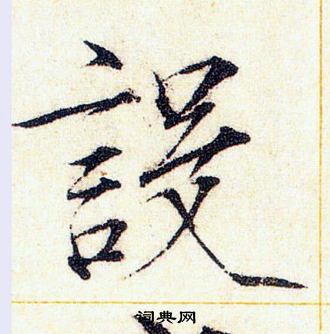 設
词典网